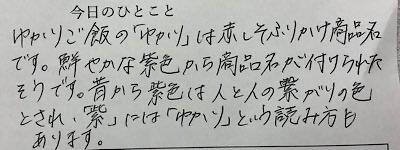 今日のひとこと
ゆかりご飯の「ゆかり」は赤しそふりかけ商品名
です。鮮やかな紫色から商品名が付けられた
そうです。昔から紫色は人と人の繋がりの色
とされ、「紫」には「ゆかり」という読み方も
あります。